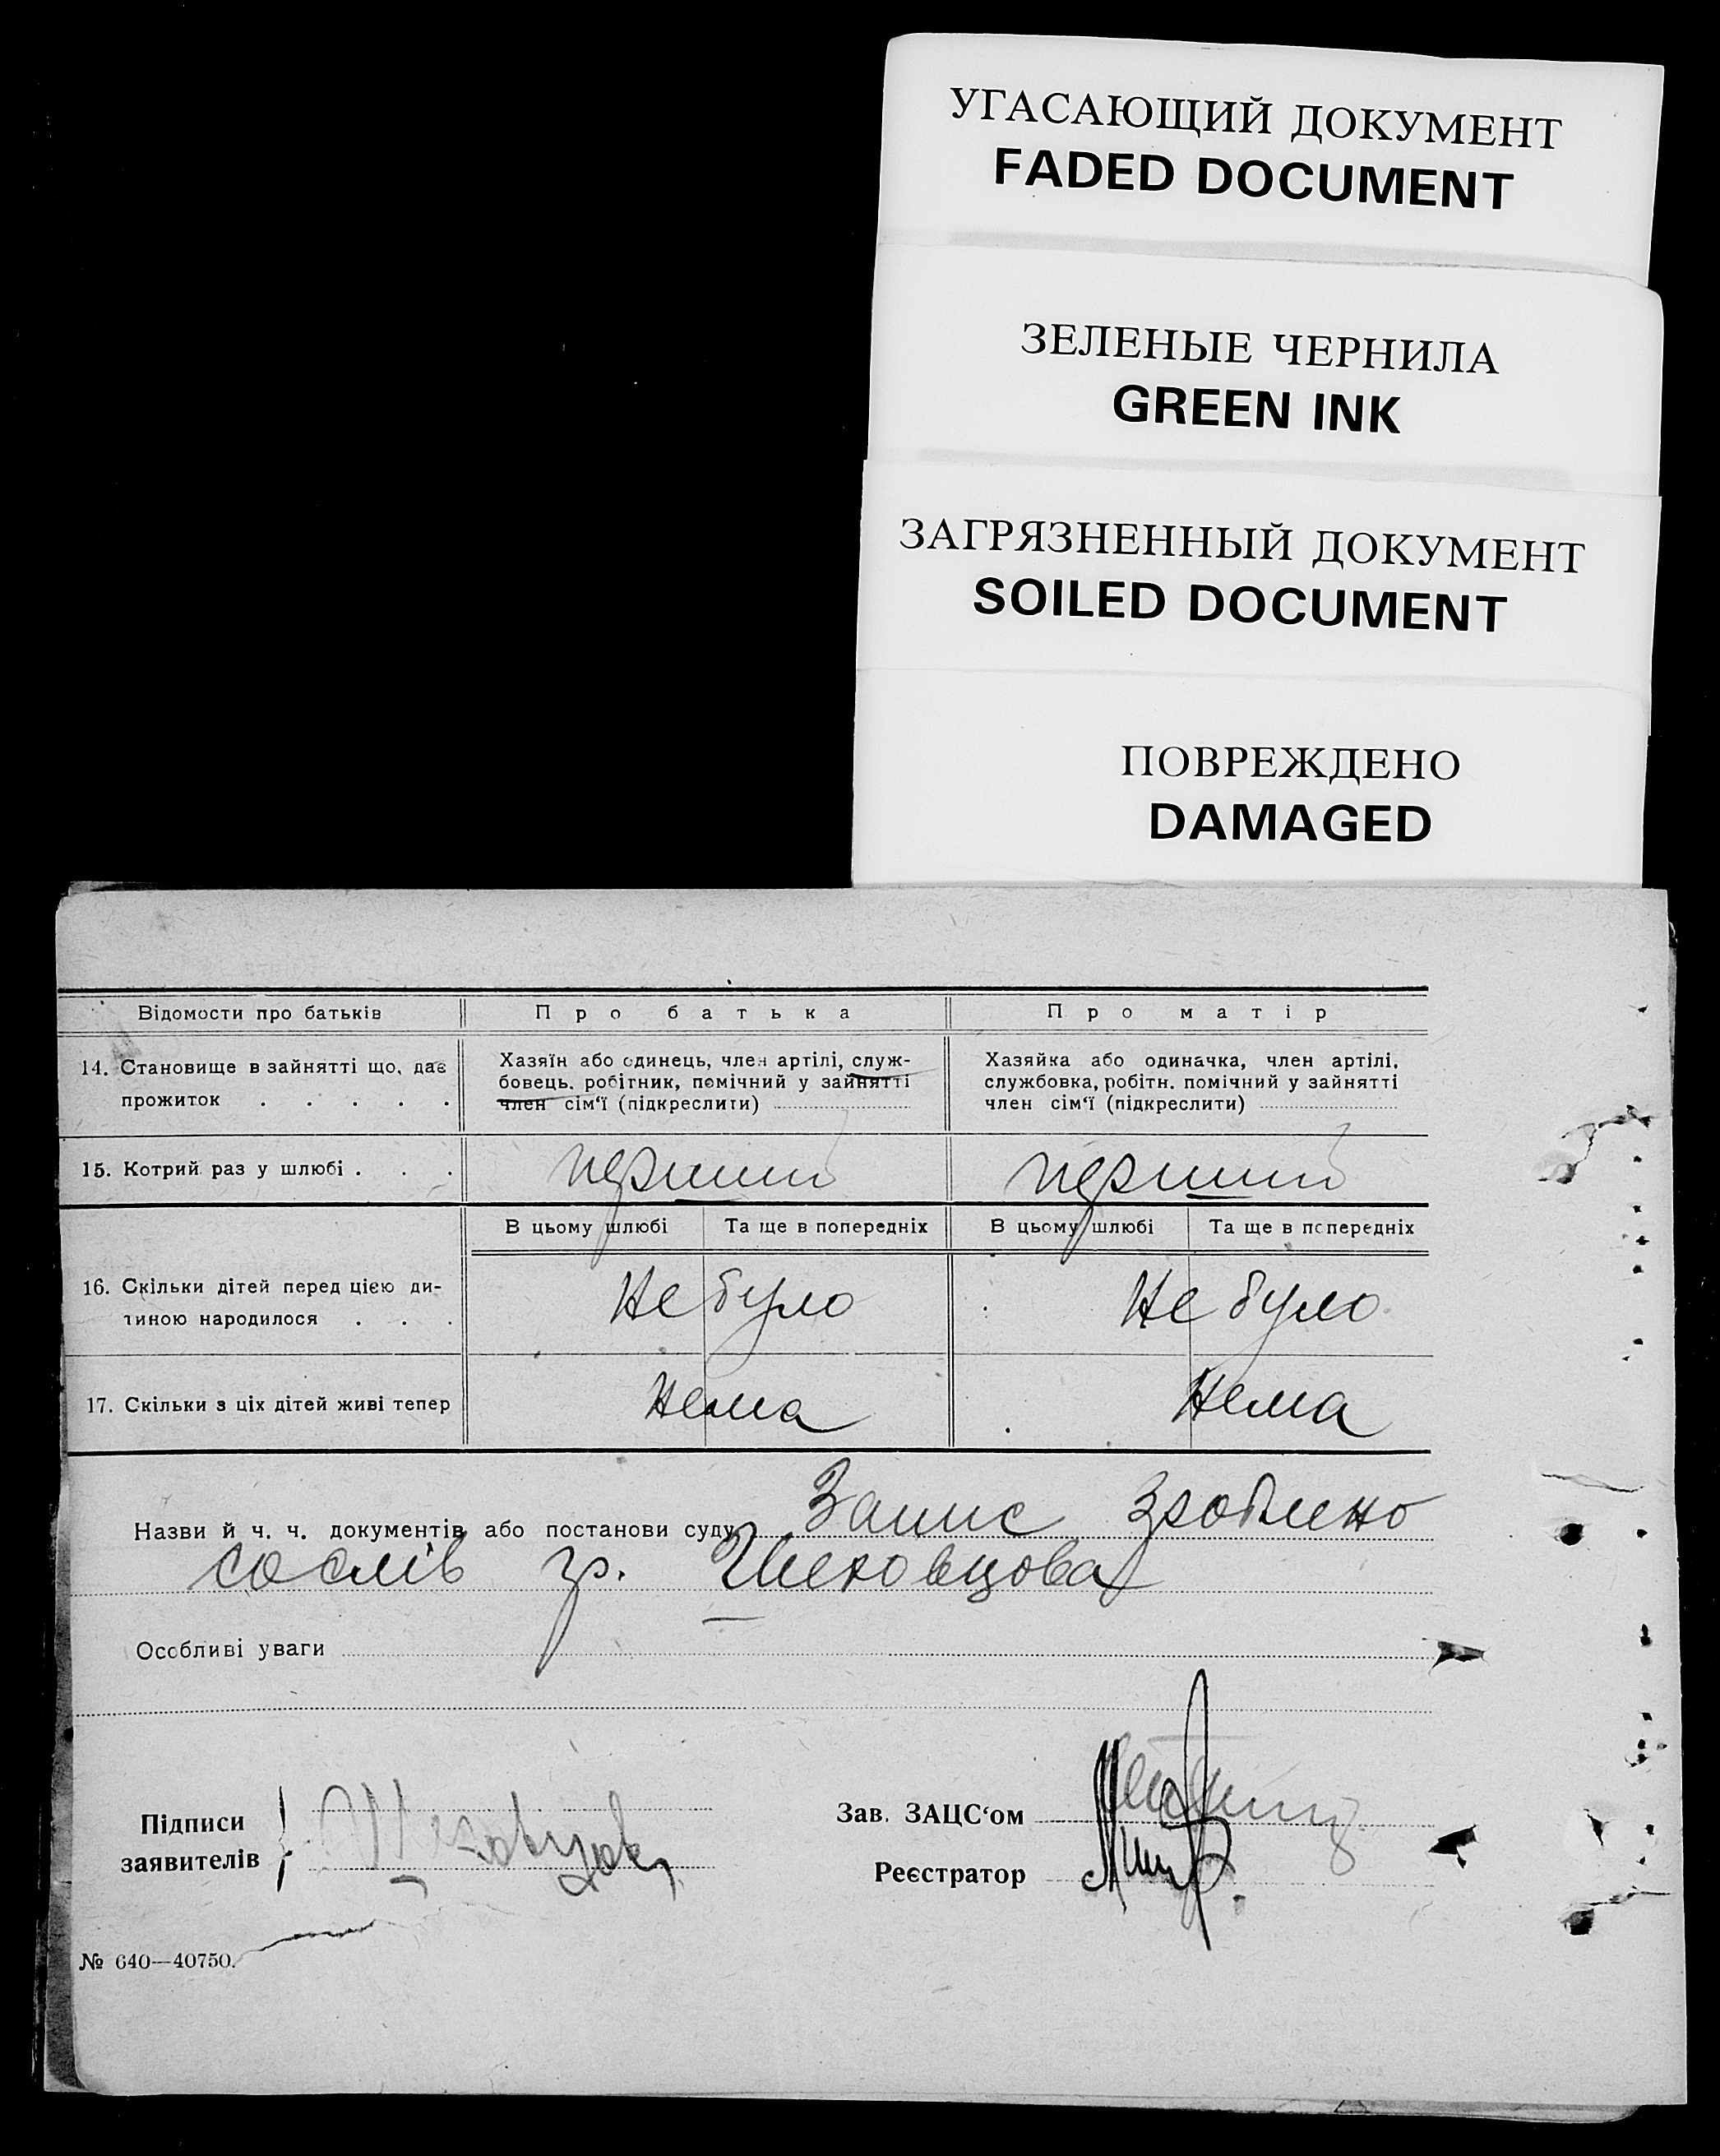 УГАСАЮЩИЙ ДОКУМЕНТ
FADED DOCUMENT
ЗЕЛЕНЫЕ ЧЕРНИЛА
GREEN INK
ЗАГРЯЗНЕННЫЙ ДОКУМЕНТ
SOILED DOCUMENT
ПОВРЕЖДЕНО
DAMAGED
Відомости про батьків Про батька Про матір
14. Становище в зайнятті що, дає
прожиток . . . . .
Хазяїн або одинець, член артілі, служ-
бовець. робітник, помічний у зайнятті
член сім‘ї (підкреслити)
Хазяйка або одиначка, член артілі.
службовка, робітн. помічний у зайнятті
член сім‘ї (підкреслити)
15. Котрий раз у шлюбі . . . перший перший
В цьому шлюбі Та ще в попередніх В цьому шлюбі Та ще в попередніх
16. Скільки дітей перед цією ди-
тиною народилося . . .
Не було Не було
17. Скільки з ціх дітей живі тепер Нема Нема
Назви й ч. ч. документів або постанови суду Запис зроблено
со слів гр. Шеховцова
Особливі уваги
Підписи
заявителів
Шеховцов
Зав. ЗАЦС‘ом
Реєстратор
№ 640—40750.